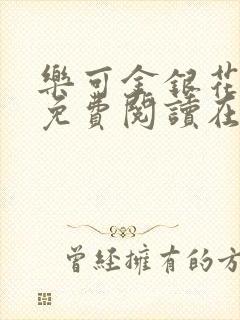 樂可金銀花
免費閱讀在
曾經擁有的方